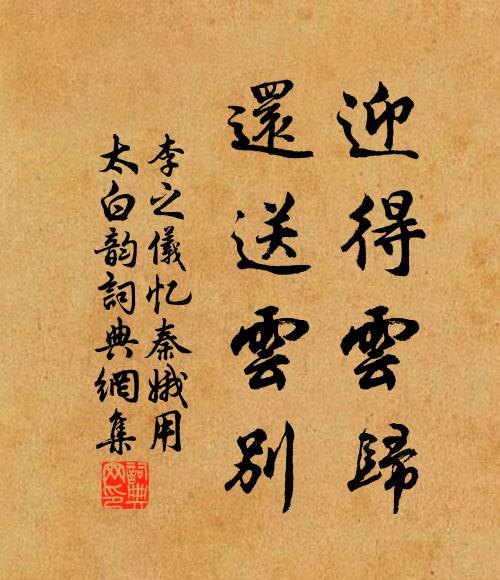 迎得雲歸
還送雲別
李之儀忆秦娥用
太白韵詞典網集
詞典
网印